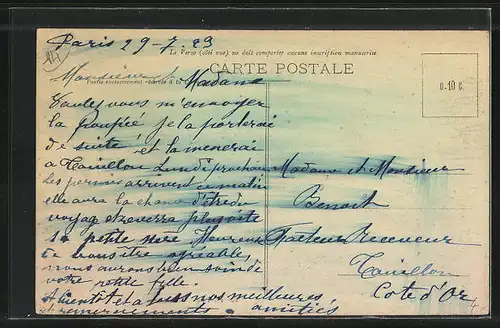 Paris 29-7-23
Le Verso (côté vue) ne doit comporter aucune inscription manuscrite
CARTE POSTALE
Partie exclusivement réservée à la
0.10 c.
Monsieur & Madame
Voulez vous m'envoyer
la poupée je la porterai
de suite et la menerai
a Touillon Lundi prochain
Les permier arrivent ce matin
elle aura la chance d'etre du
voyage et reverra plus vite
sa petite mere Heureux
de vous etre agreable,
nous aurons bien soin de
votre petite fille.
A bientot et a tous nos meilleures
remerciements amitiés
Madame et Monsieur
Benoit
Facteur Receveur
Touillon
Cote d'Or